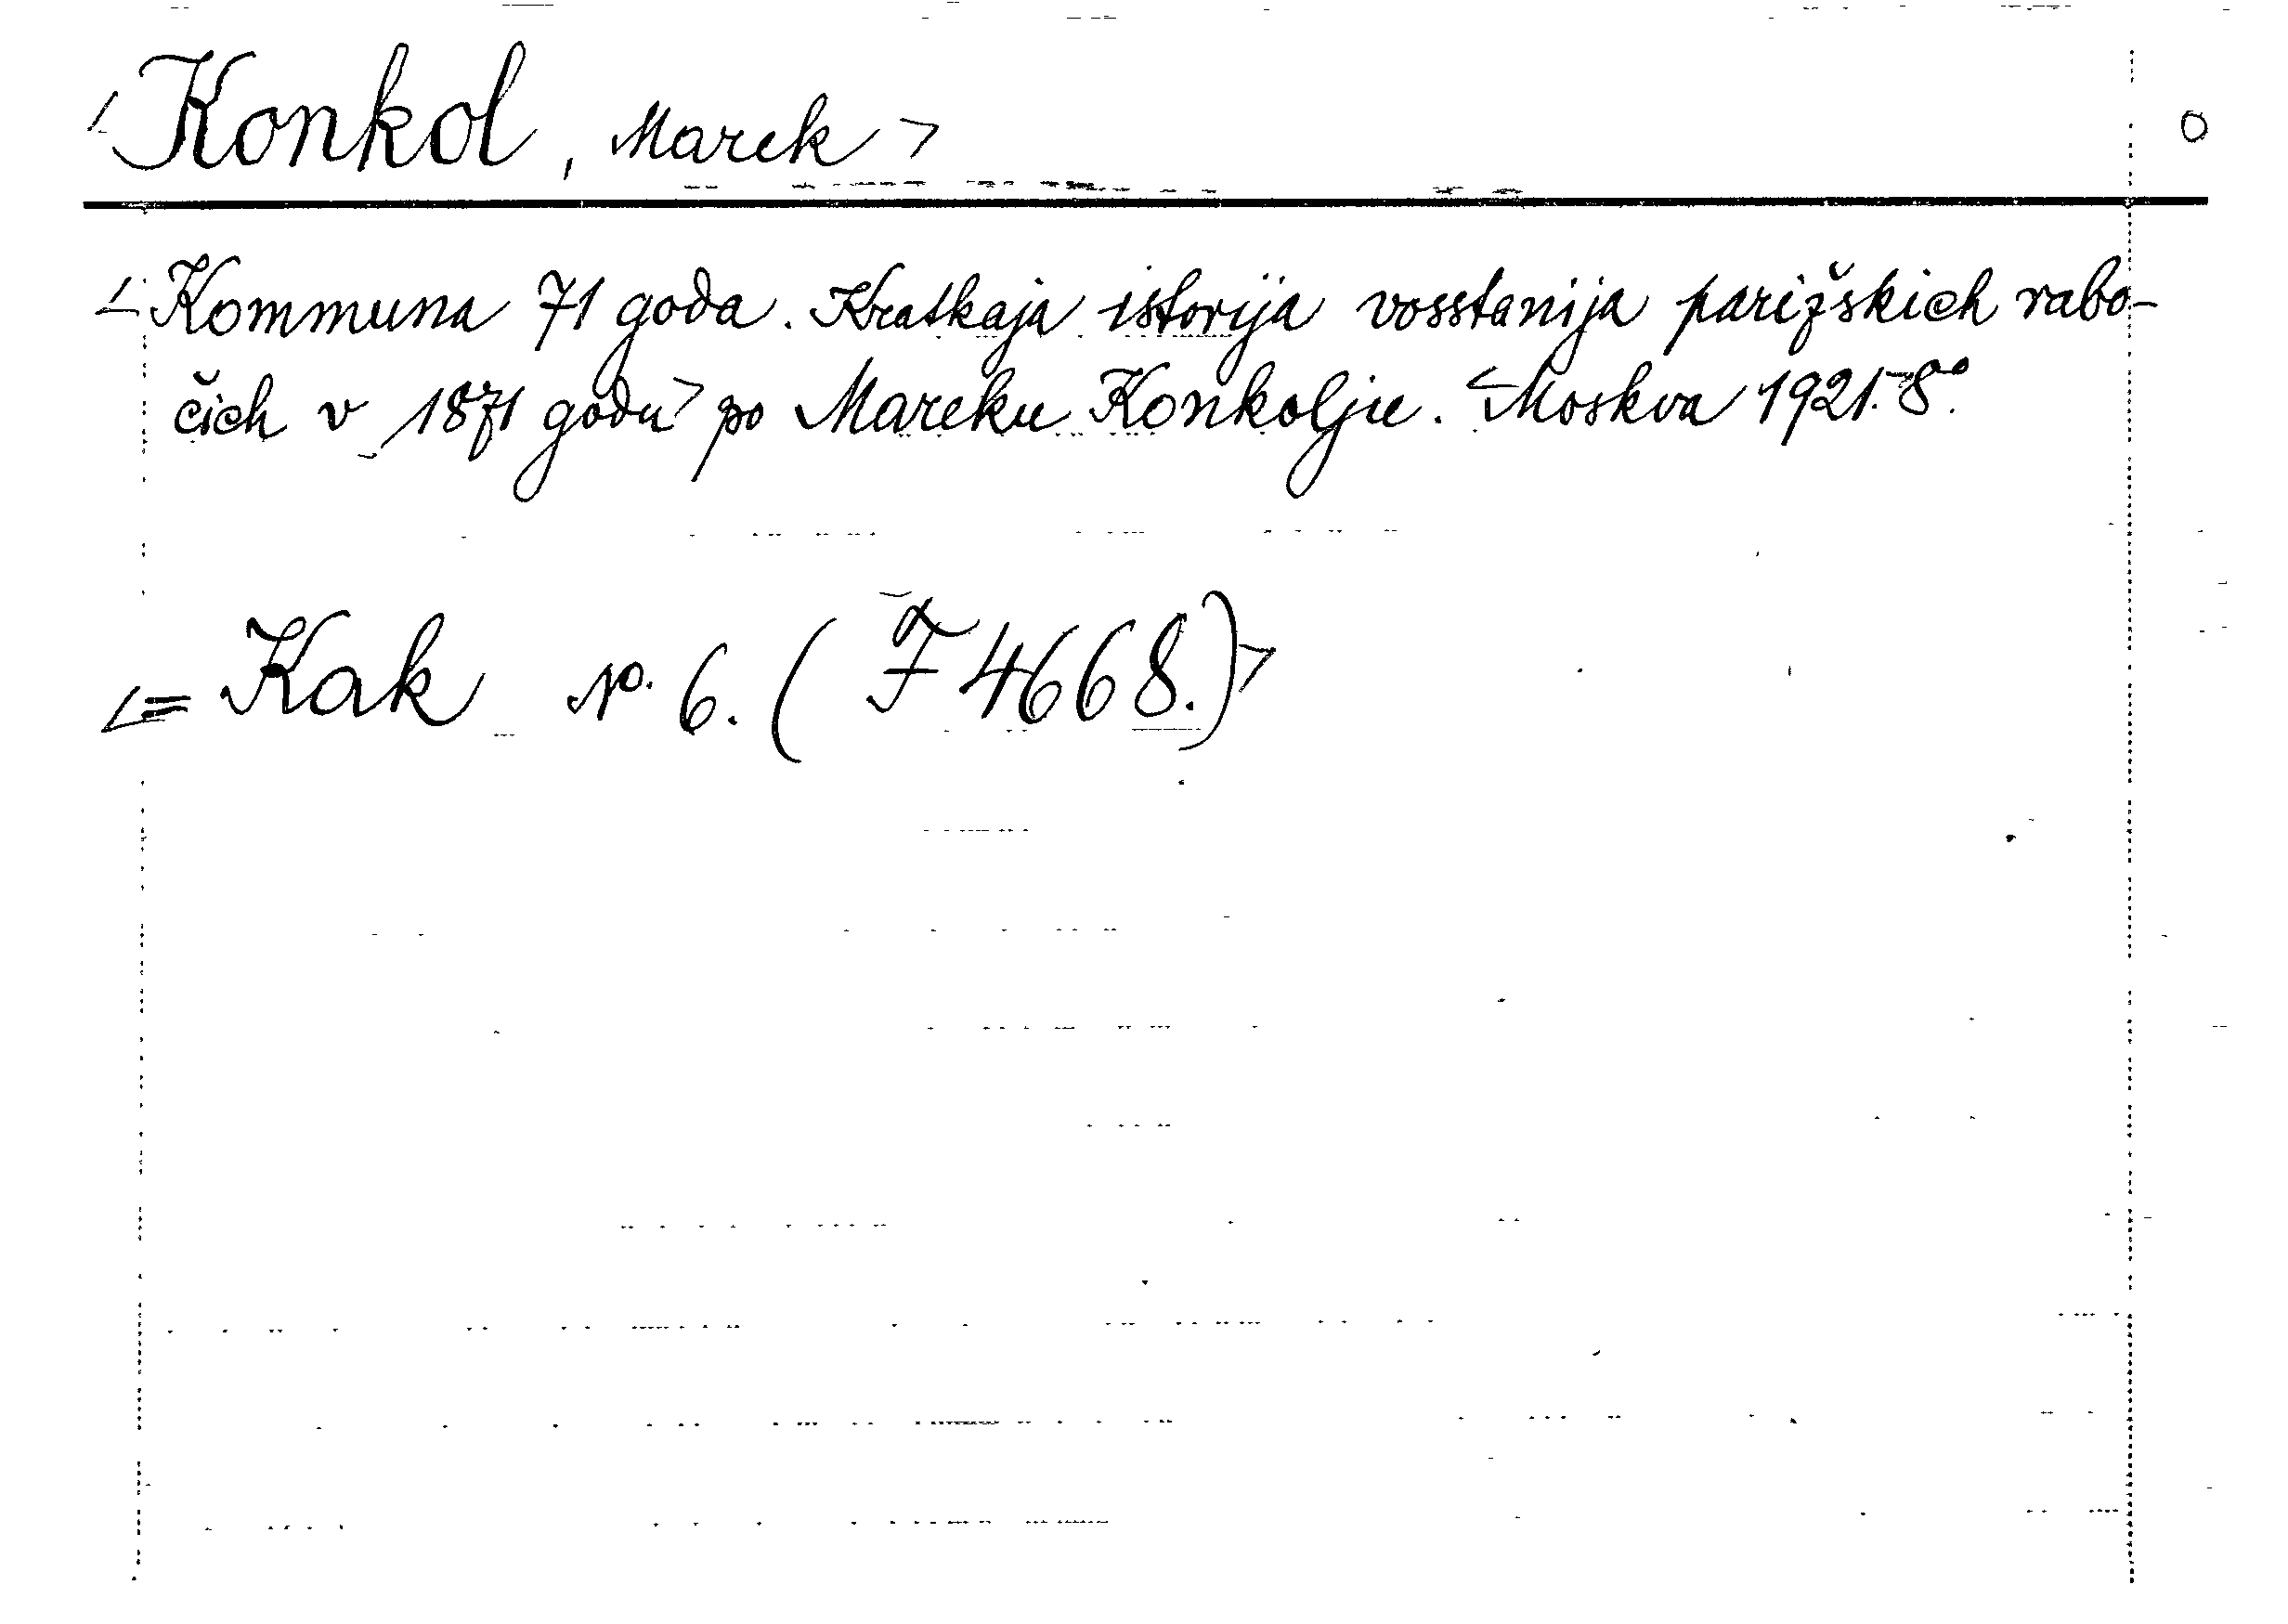 <Konkol, Marek> O
<Kommuna 71 goda. Kratkaja istorija vosstanija parižskich rabo-
čich v 1871 godu> po Mareku Konkolju. <Moskva 1921.-8°.
<= Kak No. 6. (F 4668.)>